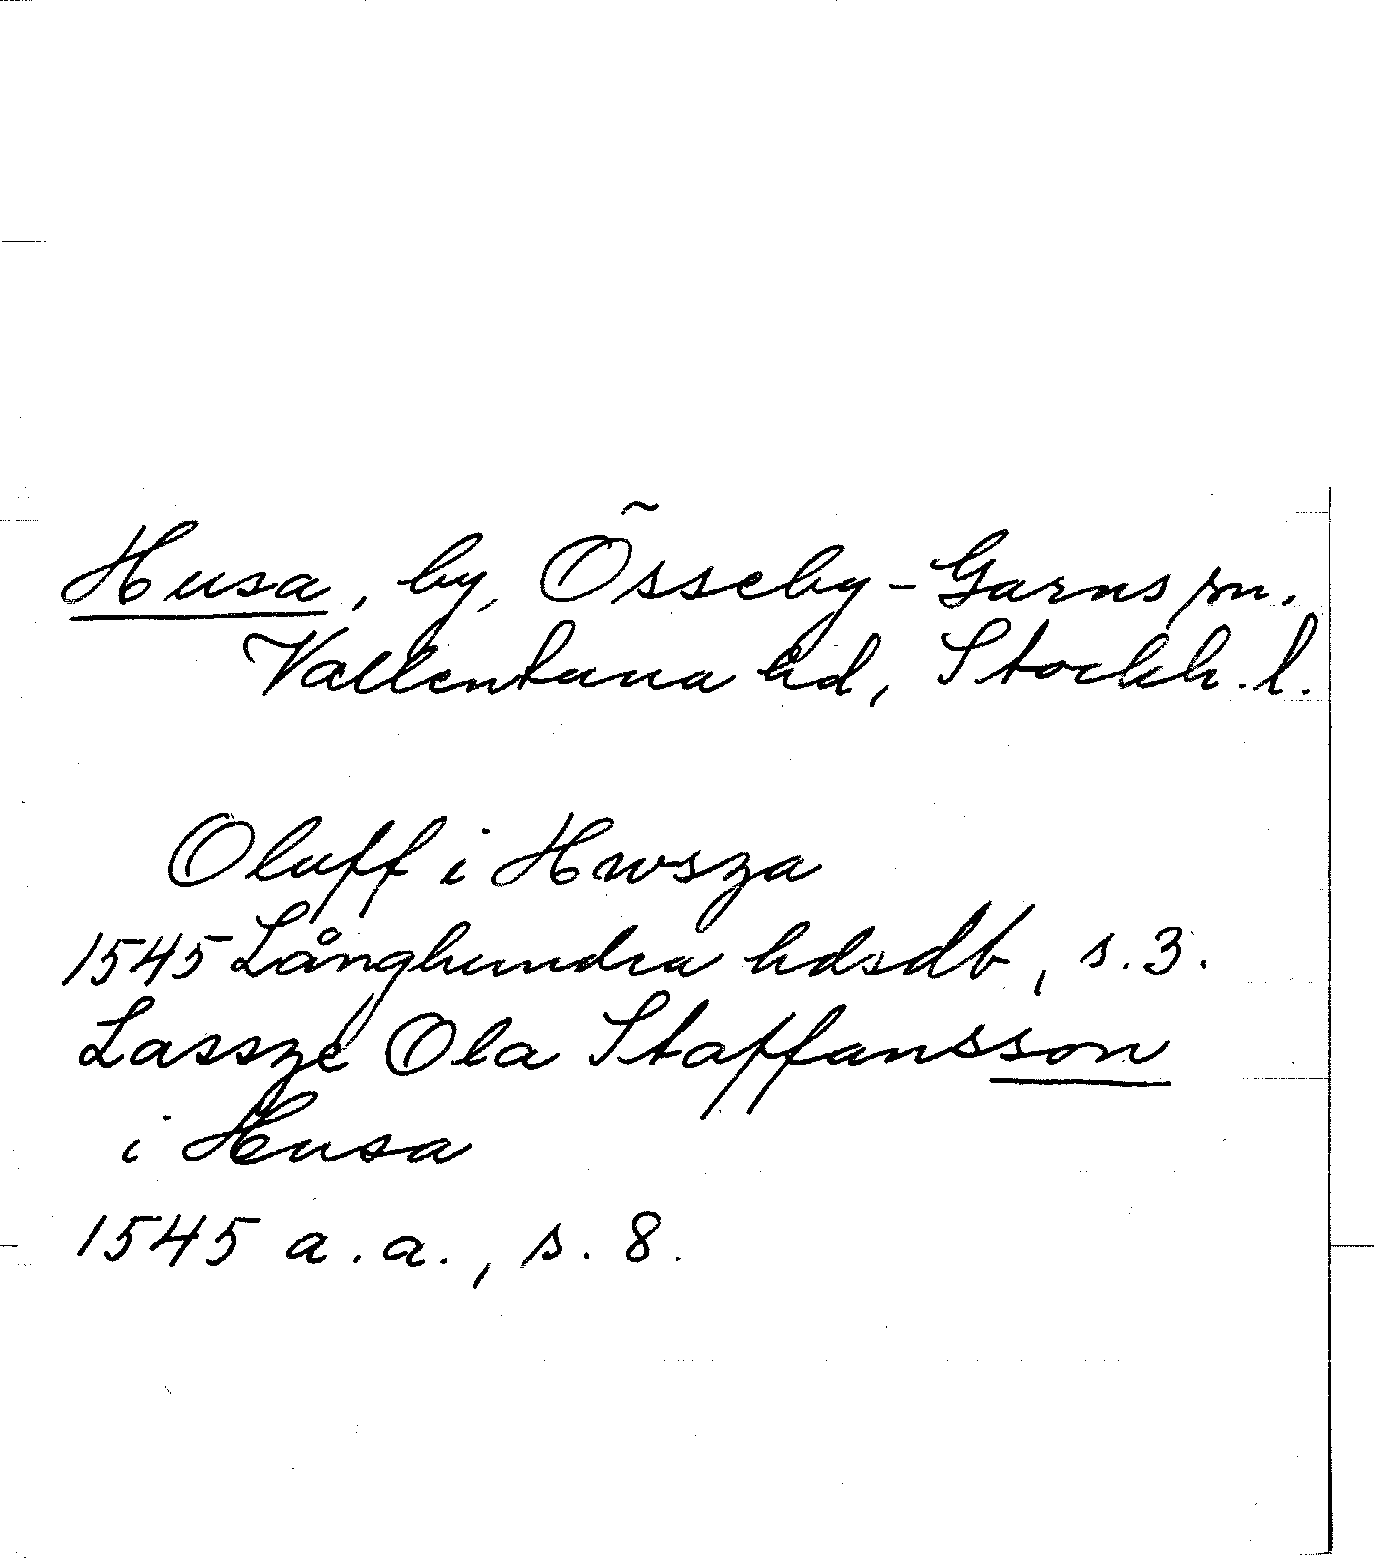 Husa, by, Össeby-Garns sn.
Vallentuna hd, Stockh. l.
Oluff i Hwsza
1545 Långhundra hdsdb, s. 3.
Lassze Ola Staffansson
i Husa
1545 a.a., s. 8.